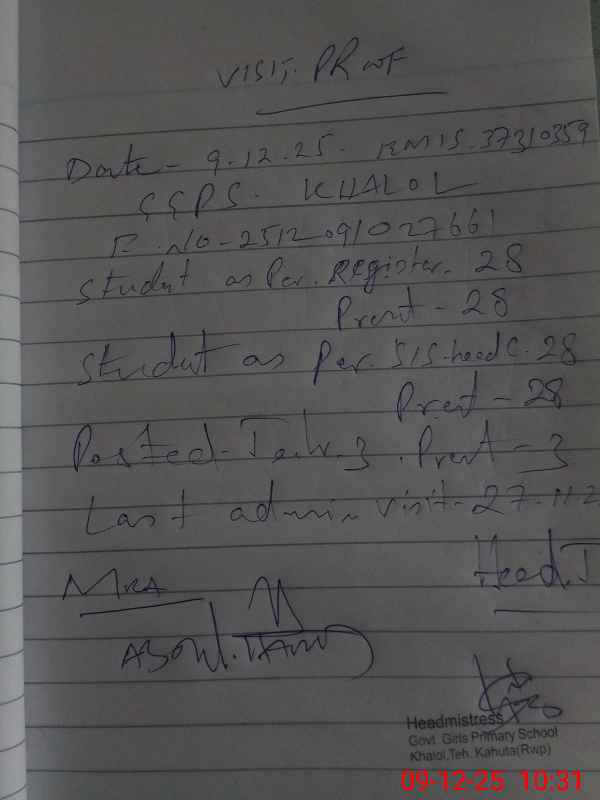 VISIT. PROOF
Date - 9.12.25. EMIS. 37310359
GGPS. KHALOL
E.NO - 2512091027661
Student as Per. Register. 28
Prent - 28
Student as Per. SIS. head c. 28
Prent - 28
Posted - Teach. 3. Prent - 3
Last admin visit - 27.11.2
Head. T
MEA
ABDUL.
Headmistress
Govt. Girls Primary School
Khalol,Teh. Kahuta(Rwp)
09-12-25 10:31